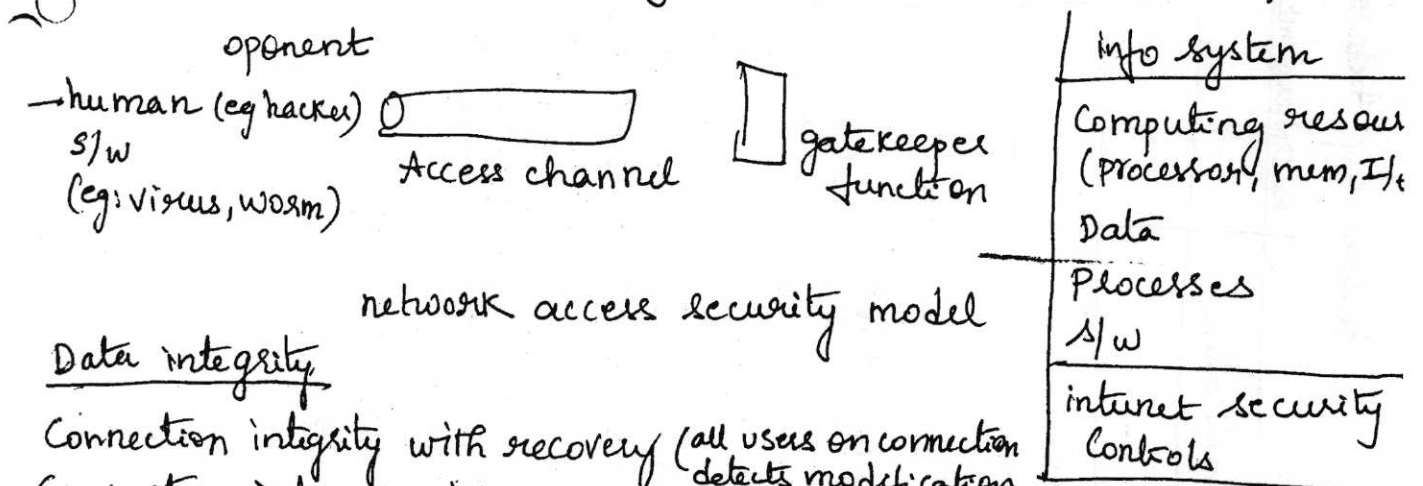 oponent
→human (eg hacker)
s/w
(eg: virus, worm)
Access channel
gatekeeper
function
info system
Computing resour
(processor, mem, I/
Data
Processes
s/w
intunet security
Controls
network access security model
Data integrity
Connection integrity with recovery (all users on connection
detects modification